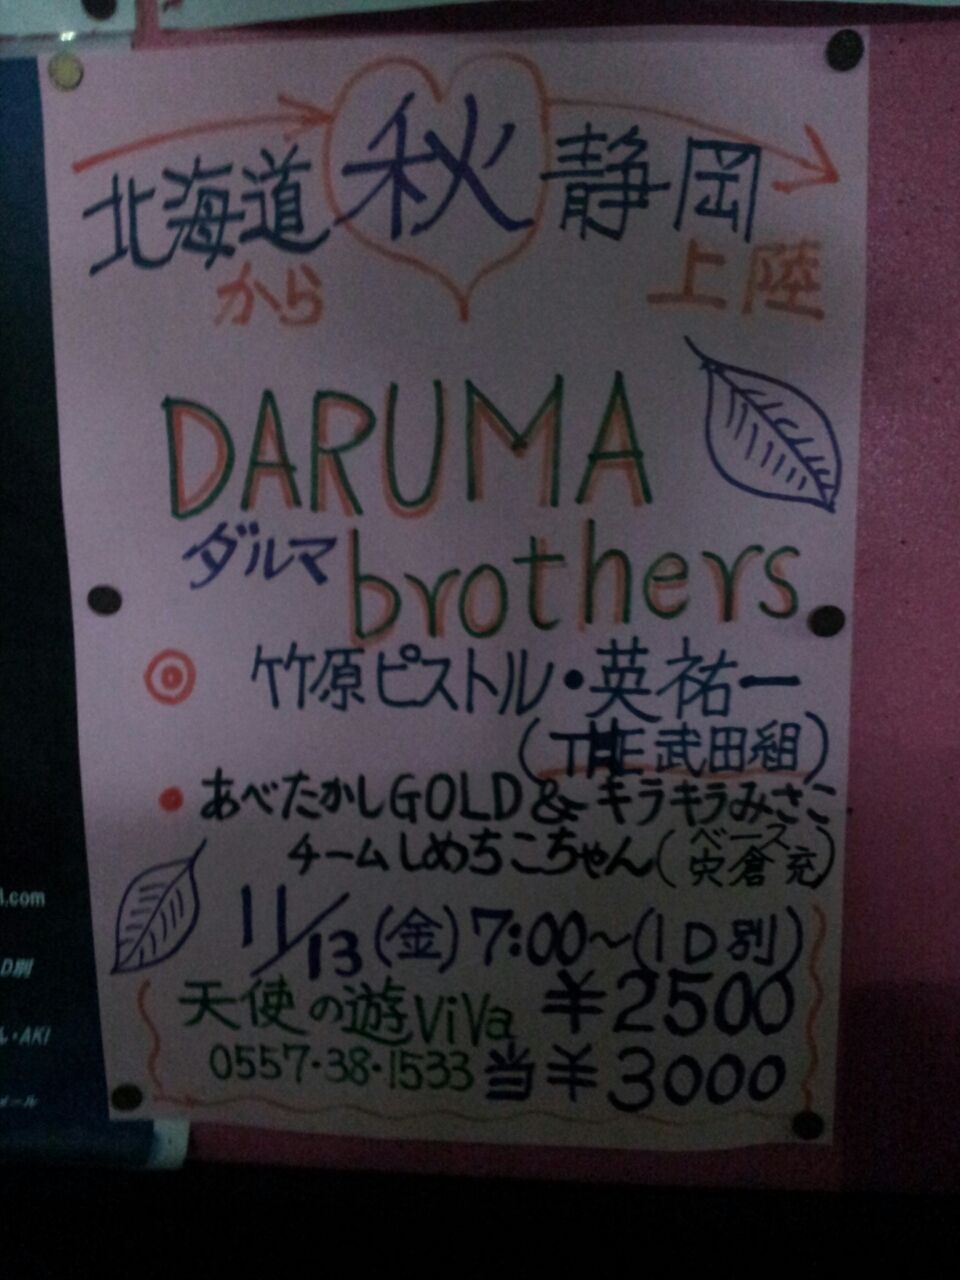 北海道 秋 静岡
から 上陸
DARUMA
ダルマ brothers
◎ 竹原ピストル・英祐一
(THE武田組)
・あべたかしGOLD&キラキラみさこ
チームしめちこちゃん(ベース 宍倉充)
11/13(金)7:00〜(1D別)
天使の遊ViVa ¥2500
0557・38・1533 当¥3000
l.com
D別
・AKI
メール